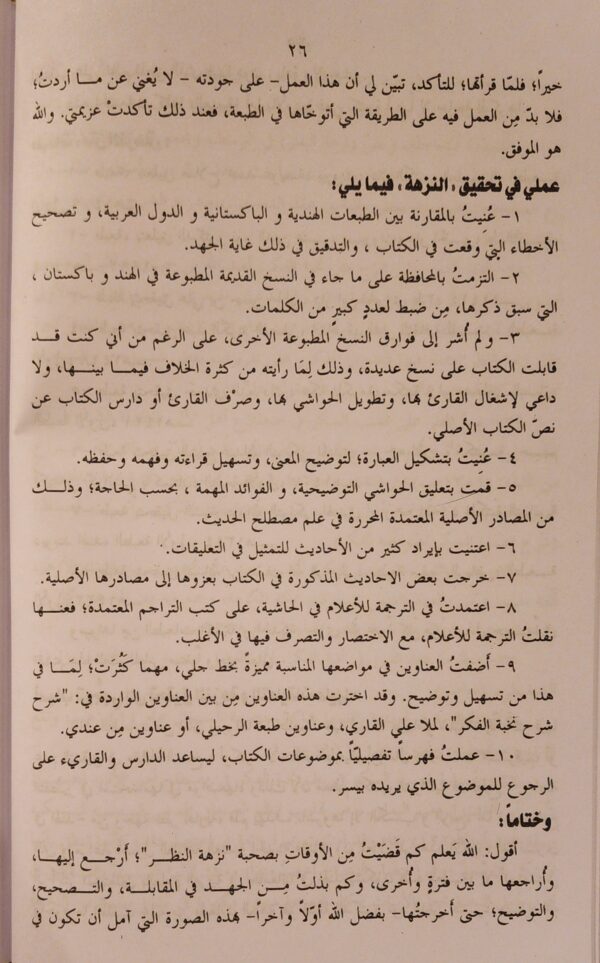 ٢٦
خيراً؛ فلمّا قرأتها؛ للتأكد، تبيّن لي أن هذا العمل- على جودته - لا يُغني عن مـا أردتُ؛
فلا بدّ مِن العمل فيه على الطريقة التي أتوخّاها في الطبعة، فعند ذلك تأكدتْ عزيمتي. والله
هو الموفق.
عملي في تحقيق «النزهة» فيما يلي:
١- عُنِيتُ بالمقارنة بين الطبعات الهندية و الباكستانية و الدول العربية، و تصحيح
الأخطاء التي وقعت في الكتاب ، والتدقيق في ذلك غاية الجهد.
٢- التزمتُ بالمحافظة على ما جاء في النسخ القديمة المطبوعة في الهند و باكستان ،
التي سبق ذكرها، مِن ضبط لعددٍ كبيرٍ من الكلمات.
٣- ولم أُشر إلى فوارق النسخ المطبوعة الأخرى، على الرغم من أني كنت قـد
قابلت الكتاب على نسخ عديدة، وذلك لِمَا رأيته من كثرة الخلاف فيمـا بينـها، ولا
داعي لإشغال القارئ بها، وتطويل الحواشي بها، وصرْف القارئ أو دارس الكتاب عن
نصّ الكتاب الأصلي.
٤- عُنِيتُ بتشكيل العبارة؛ لتوضيح المعنى، وتسهيل قراءته وفهمه وحفظه.
٥- قمتِ بتعليق الحواشي التوضيحية، و الفوائد المهمة ، بحسب الحاجة؛ وذلـــك
من المصادر الأصلية المعتمدة المحررة في علم مصطلح الحديث.
٦- اعتنيت بإيراد كثير من الأحاديث للتمثيل في التعليقات.
٧- خرجت بعض الاحاديث المذكورة في الكتاب بعزوها إلى مصادرها الأصلية.
٨- اعتمدتُ في الترجمة للأعلام في الحاشية، على كتب التراجم المعتمدة؛ فعنـــها
نقلتُ الترجمة للأعلام، مع الاختصار والتصرف فيها في الأغلب.
٩- أَضفتُ العناوين في مواضعها المناسبة مميزةً بخط جلي، مهما كَثُرَتْ؛ لِمَـا في
هذا من تسهيل وتوضيح. وقد اخترت هذه العناوين مِن بين العناوين الواردة في: "شرح
شرح نخبة الفكر"، لملا علي القاري، وعناوين طبعة الرحيلي، أو عناوين مِن عندي.
١٠- عملتُ فهرساً تفصيليّاً بموضوعات الكتاب، ليساعد الدارس والقاريء على
الرجوع للموضوع الذي يريده بيسر.
وختاماً:
أقول: الله يَعلم كم قَضَيْتُ مِن الأوقاتِ بصحبة "نزهة النظـر"؛ أَرْجـع إليهـا،
وأُراجعها ما بين فترةٍ وأُخرى، وكم بذلتُ مِـن الجهـد في المقابلـة، والتـصحيح،
والتوضيح؛ حتى أَخرجتُها- بفضل الله أوّلاً وآخراً- بهذه الصورة التي آمل أن تكون في